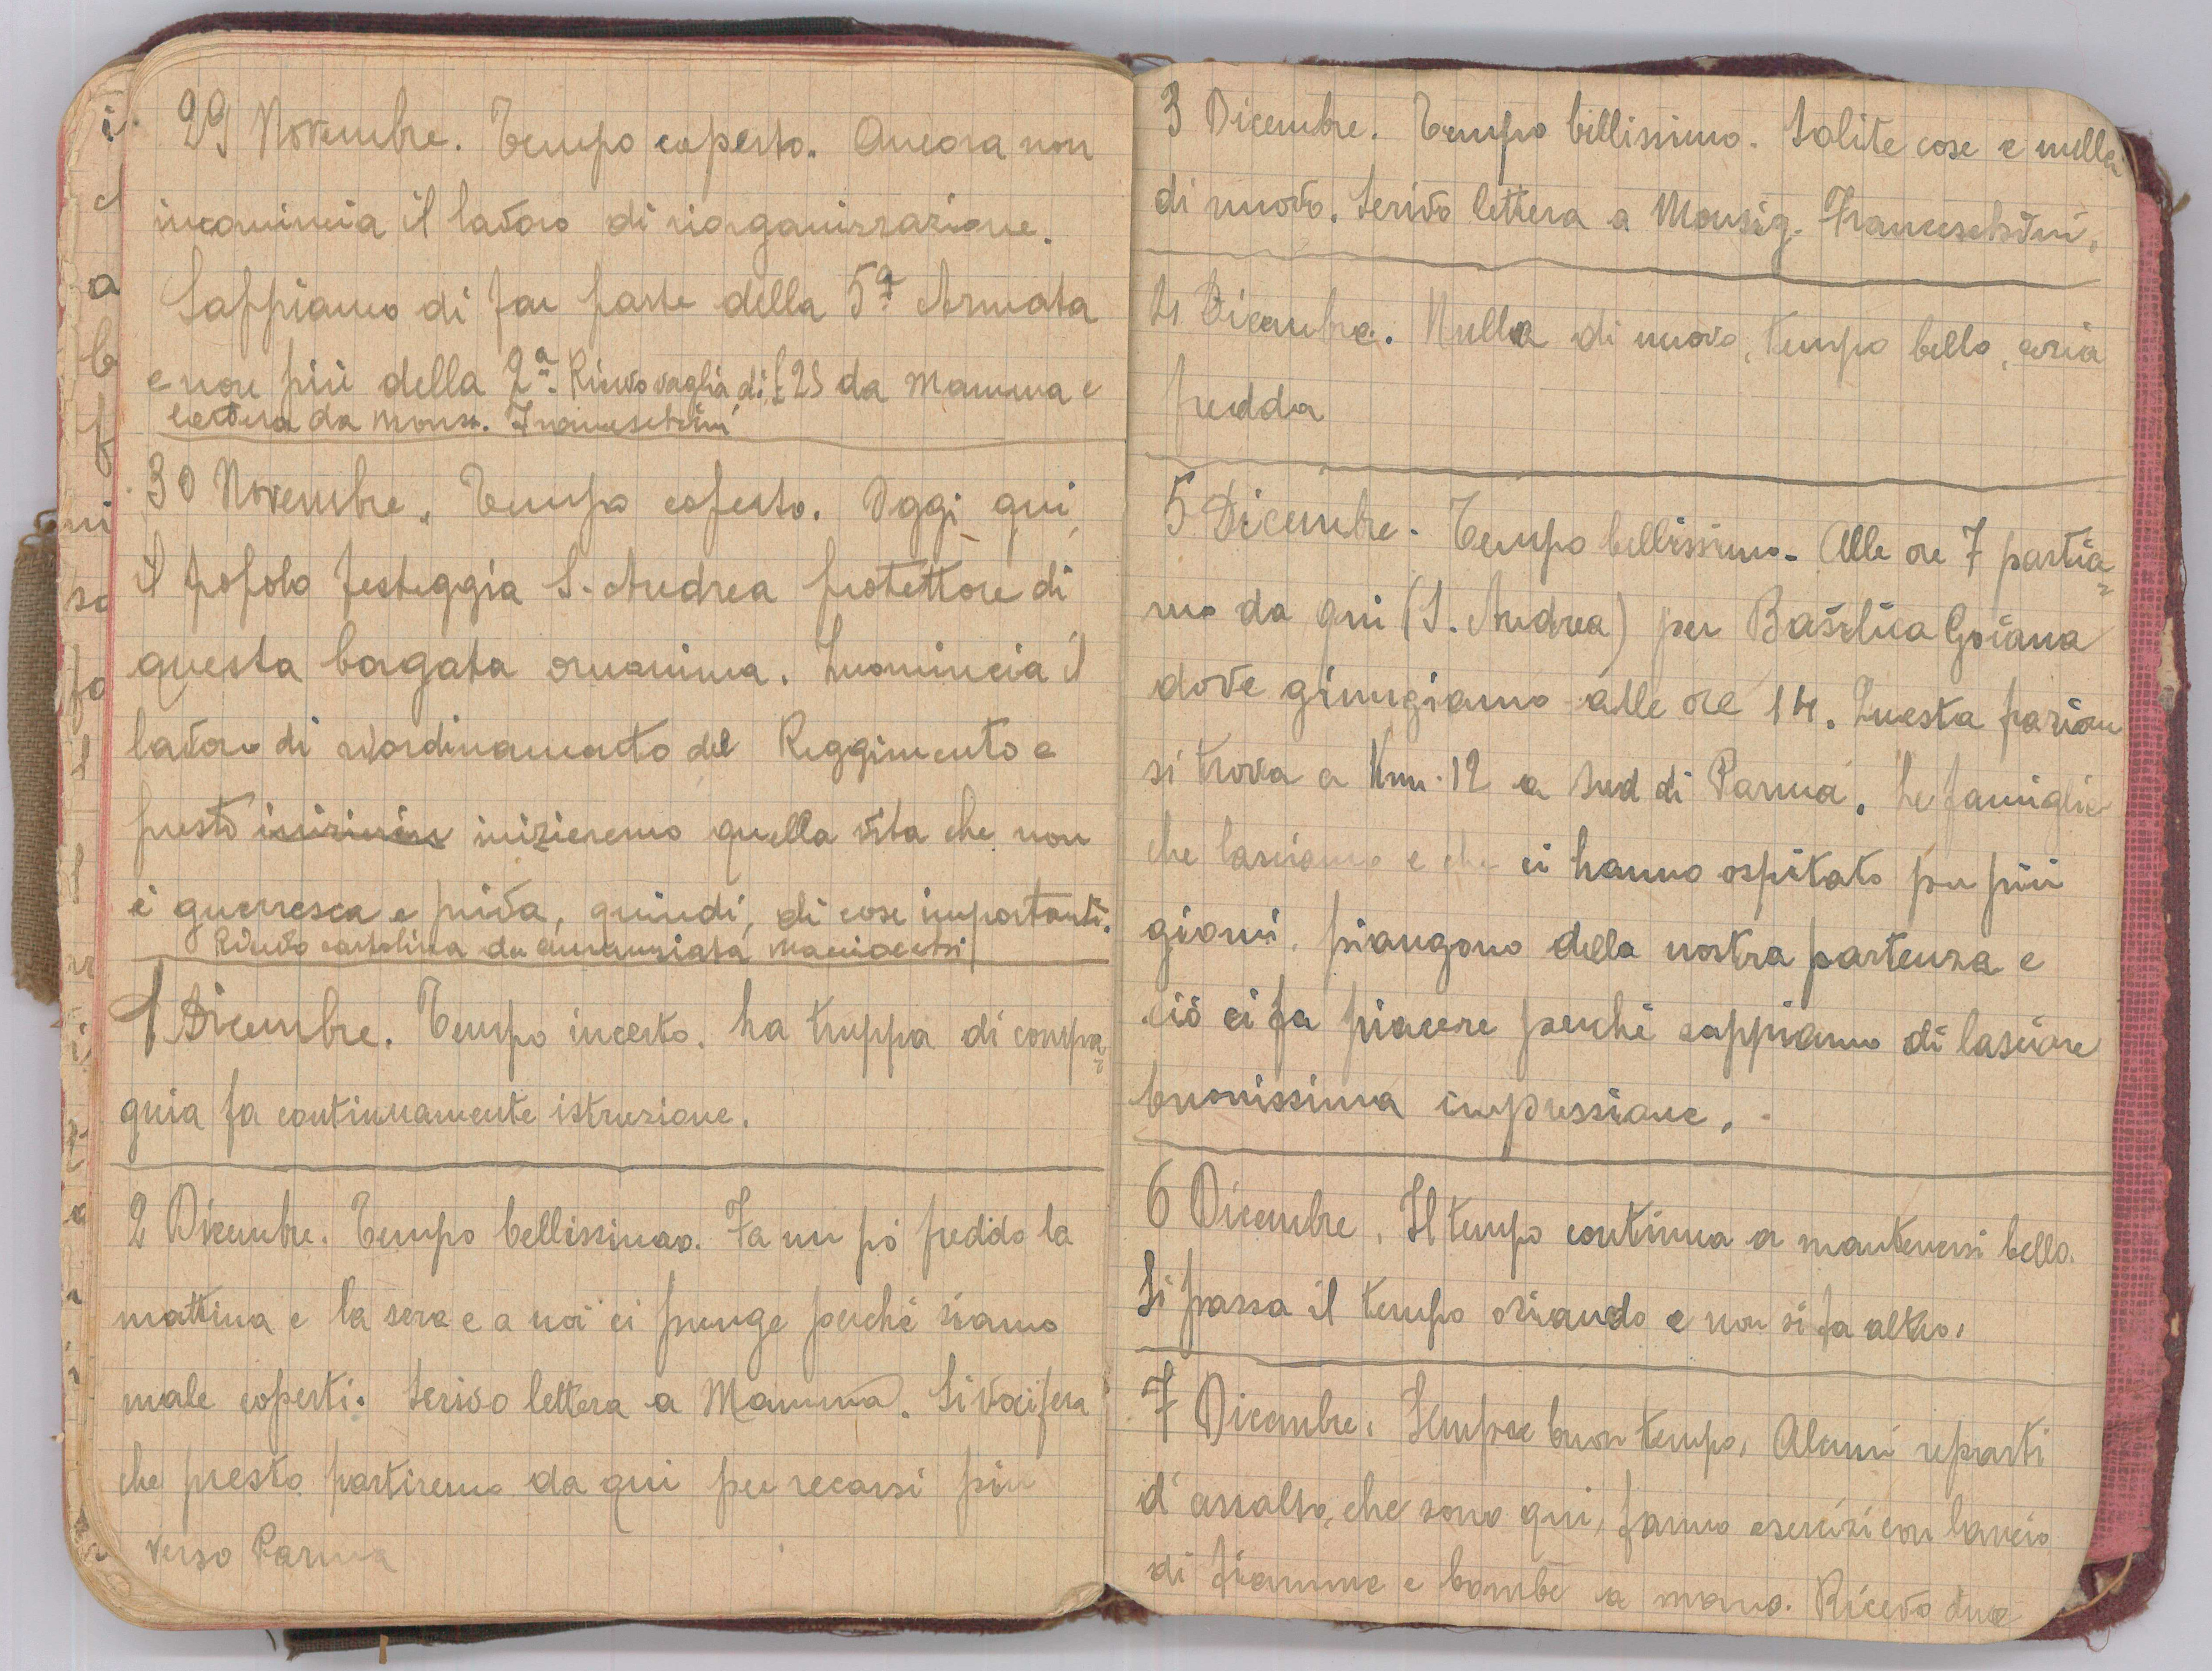 29 Novembre. Tempo coperto. Ancora non
incomincia il lavoro di riorganizzazione.
Sappiamo di far parte della 5ª Armata
e non più della 2ª. Ricevo vaglia di £25 da Mamma e
lettera da Mons. Franceschini
30 Novembre. Tempo coperto. Oggi qui
il popolo festeggia S. Andrea protettore di
questa borgata omonima. Incomincia il
lavoro di riordinamento del Reggimento e
presto inizieremo quella vita che non
è guerresca e priva, quindi, di cose importanti.
Ricevo cartolina da Annunziata
1 Dicembre. Tempo incerto. La truppa di compa=
gnia fa continuamente istruzione.
2 Dicembre. Tempo bellissimo. Fa un pò freddo la
mattina e la sera e a noi ci punge perchè siamo
male coperti. Scrivo lettera a Mamma. Si vocifera
che presto partiremo da qui per recarsi più
verso Parma
3 Dicembre. Tempo bellissimo. Solite cose e nulla
di nuovo. Scrivo lettera a Monsig. Franceschini.
4 Dicembre. Nulla di nuovo, tempo bello, aria
fredda
5 Dicembre. Tempo bellissimo. Alle ore 7 partia=
mo da qui (S. Andrea) per Basilica Goiana
dove giungiamo alle ore 14. Questa
si trova a Km. 12 a sud di Parma. Le famiglie
che lasciamo e che ci hanno ospitato per più
giorni, piangono della nostra partenza e
ciò ci fa piacere perchè sappiamo di lasciare
buonissima impressione.
6 Dicembre. Il tempo continua a mantenersi bello.
Si passa il tempo oziando e non si fa altro.
7 Dicembre. Sempre buon tempo. Alcuni reparti
d'assalto, che sono qui, fanno esercizi con lancio
di fiamme e bombe a mano. Ricevo due